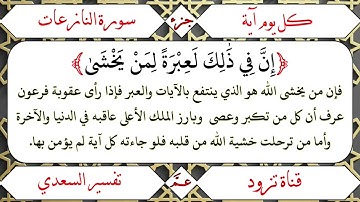 كل يوم آية
جزء
سورة النازعات
﴿إِنَّ فِي ذَٰلِكَ لَعِبْرَةً لِمَنْ يَخْشَىٰ﴾
فإن من يخشى الله هو الذي ينتفع بالآيات والعبر فإذا رأى عقوبة فرعون
عرف أن كل من تكبر وعصى وبارز الملك الأعلى عاقبه في الدنيا والآخرة
وأما من ترحلت خشية الله من قلبه فلو جاءته كل آية لم يؤمن بها.
قناة تزود
عم
تفسير السعدي